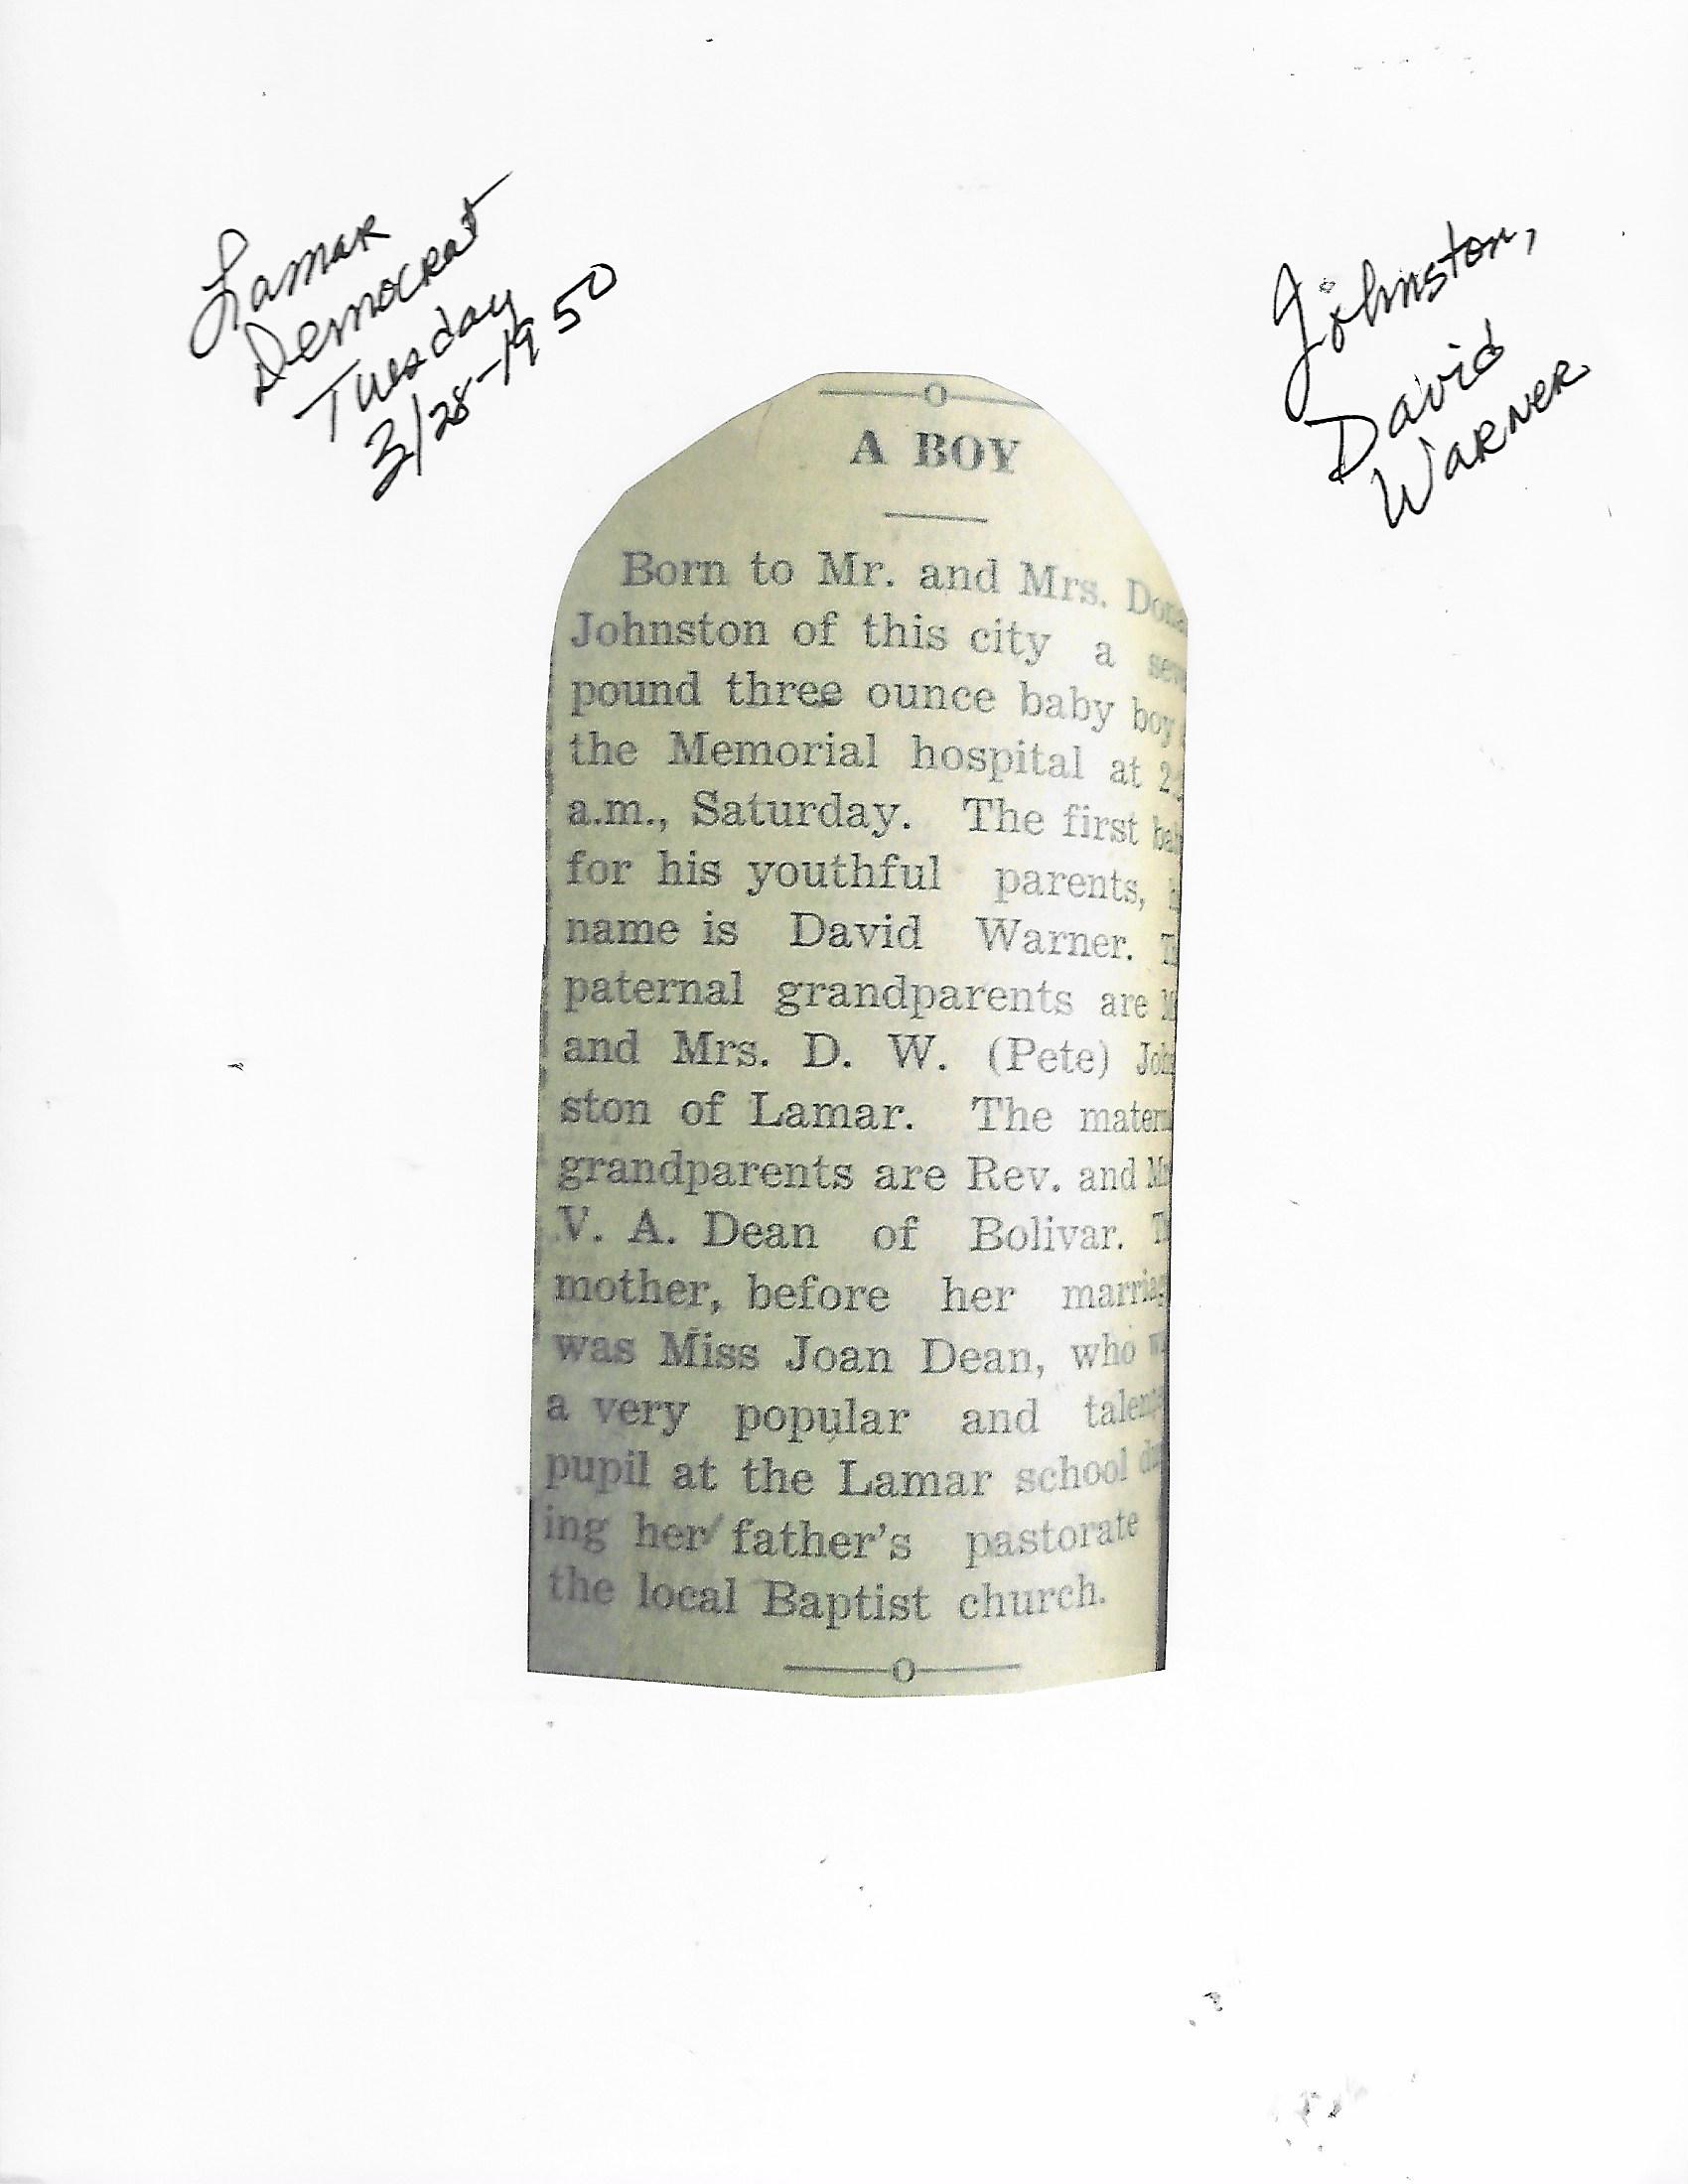 Lamar
Democrat
Tuesday
3/28-1950
Johnston,
David
Warner
A BOY
Born to Mr. and Mrs.
Johnston of this city a
pound three ounce baby boy
the Memorial hospital at
a.m., Saturday. The first
for his youthful parents,
name is David Warner.
paternal grandparents are
and Mrs. D. W. (Pete)
ston of Lamar. The
grandparents are Rev. and
V. A. Dean of Bolivar.
mother, before her
was Miss Joan Dean, who
a very popular and
pupil at the Lamar school
ing her father's pastorate
the local Baptist church.